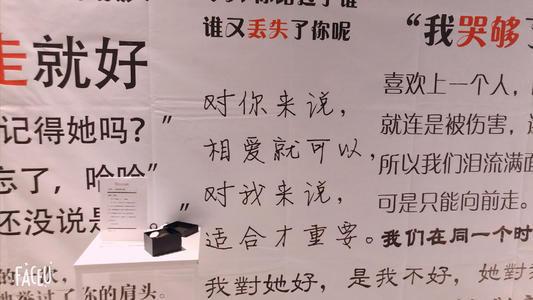 谁又丢失了你呢
走就好
记得她吗？”
忘了，哈哈”
还没说是
”
的
水，
她举过了你的肩头。
对你来说，
相爱就可以，
对我来说，
适合才重要。
我對她好，是我不好，她對
“我哭够了
喜欢上一个人，
就连是被伤害，
所以我们泪流满面
可是只能向前走。
我们在同一个时
FACEU